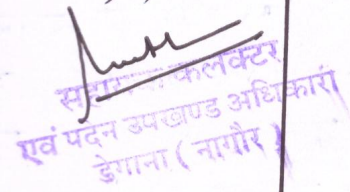 सहायक कलेक्टर
एवं पदेन उपखण्ड अधिकारी
डेगाना ( नागौर )